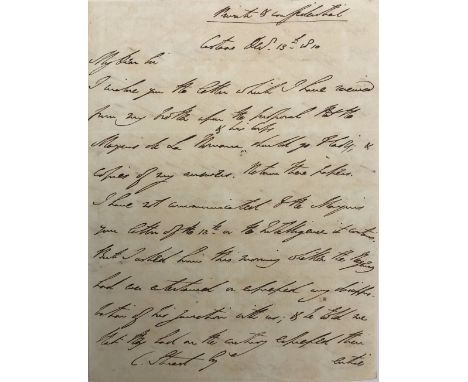 Private & confidential
Cartaxo Decr. 13th. 1810
My dear Sir
I enclose you the letter which I have received
from my brother upon the proposal that the
& his corps
Marquis de La Romana should go to Cadiz, &
copies of my answers. Return these papers.
I have not communicated to the Marquis
your letter of the 12th. or the Intelligence it contains
But I asked him this morning whether the Regency
had ever entertained or expressed any disappro-
bation of his junction with us; & he told me
that they had on the contrary expressed their
C. Stuart Esqre
entire